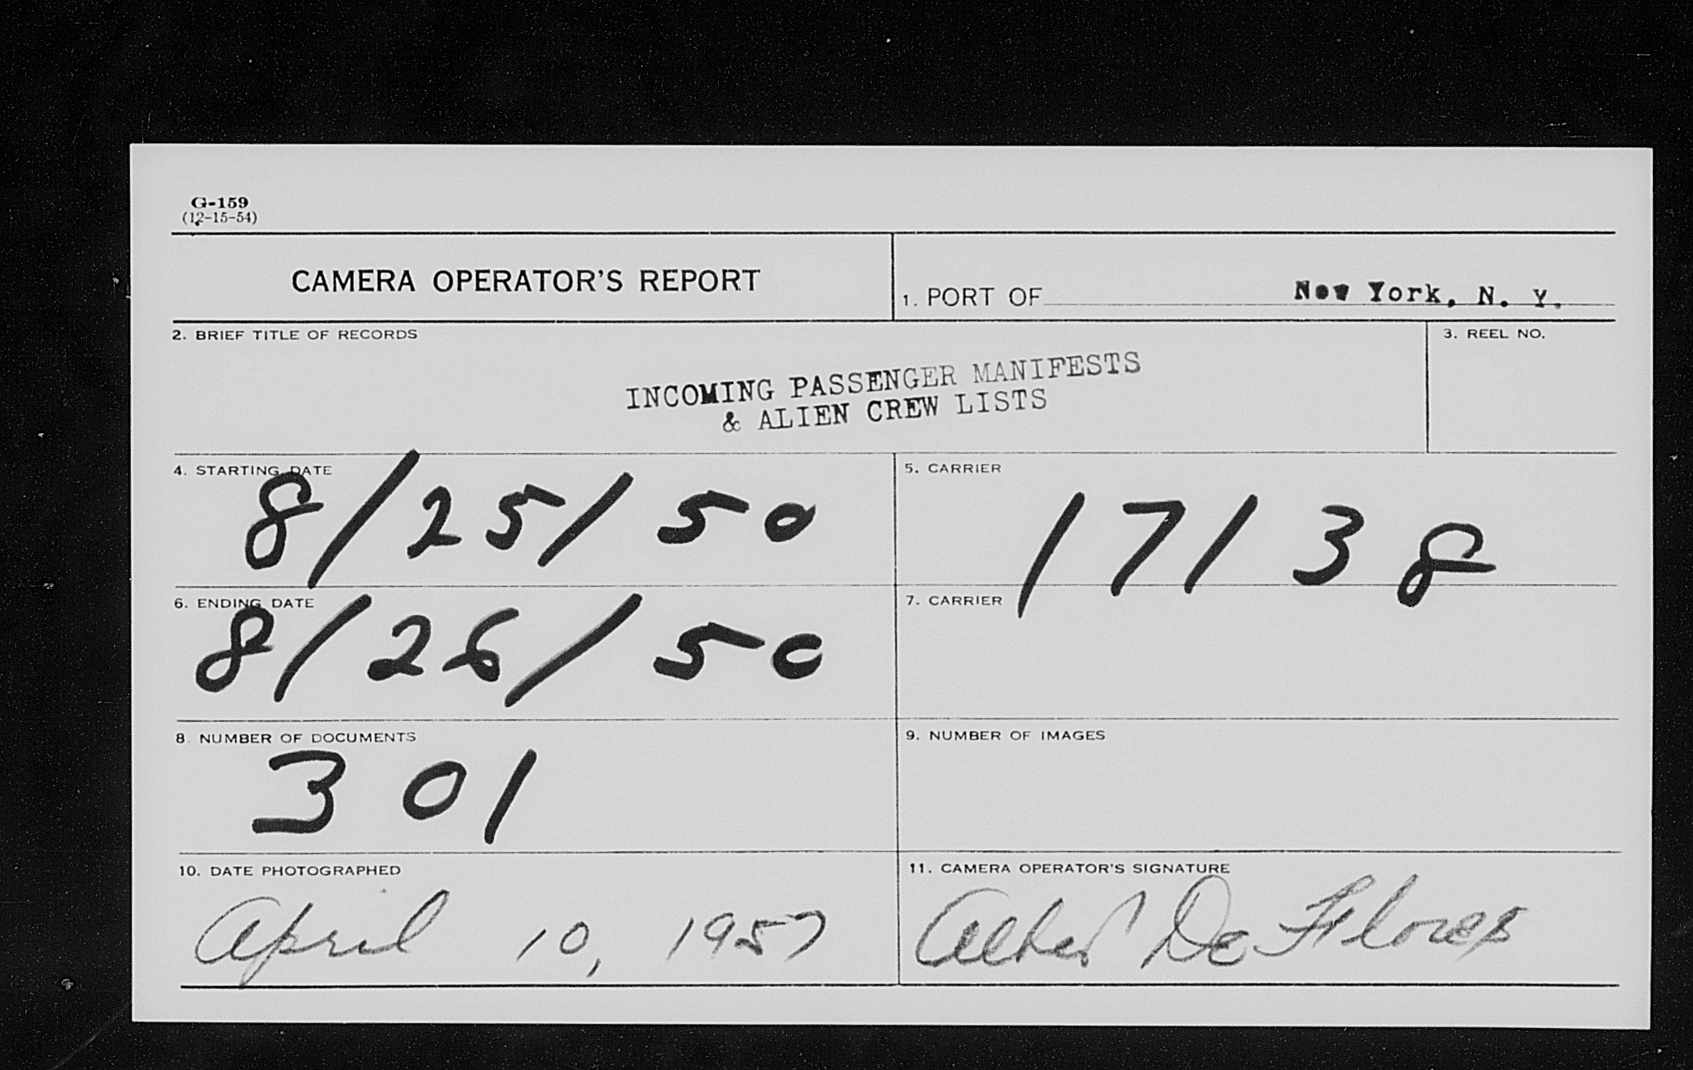 G-159
(12-15-54)
CAMERA OPERATOR'S REPORT
1. PORT OF New York, N. Y.
2. BRIEF TITLE OF RECORDS
3. REEL NO.
INCOMING PASSENGER MANIFESTS
& ALIEN CREW LISTS
4. STARTING DATE
8/25/50
5. CARRIER
17138
6. ENDING DATE
8/26/50
7. CARRIER
8. NUMBER OF DOCUMENTS
301
9. NUMBER OF IMAGES
10. DATE PHOTOGRAPHED
April 10, 1957
11. CAMERA OPERATOR'S SIGNATURE
De Flores